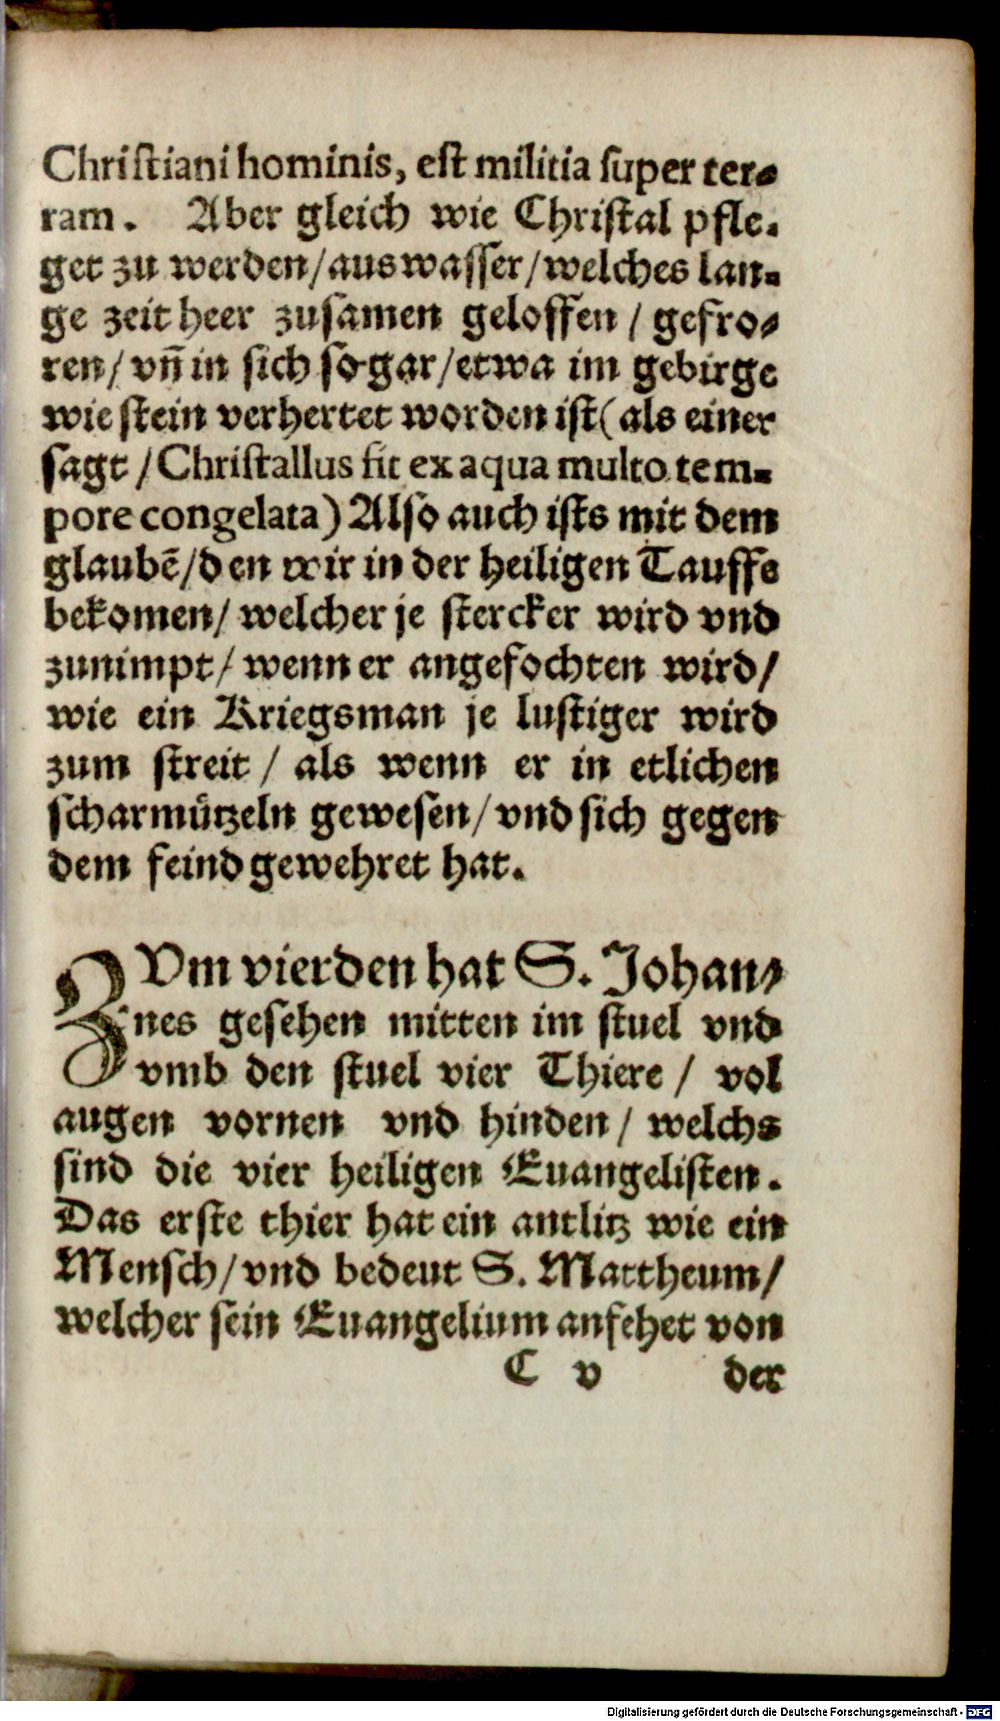 Christiani hominis, est militia super ter-
ram. Aber gleich wie Christal pfle-
get zu werden/aus wasser/welches lan-
ge zeit heer zusamen geloffen / gefro-
ren/ vn̄ in sich so gar/etwa im gebirge
wie stein verhertet worden ist (als einer
sagt /Christallus fit ex aqua multo tem-
pore congelata) Also auch ists mit dem
glaubē/den wir in der heiligen Tauffe
bekomen/ welcher je stercker wird vnd
zunimpt/ wenn er angefochten wird/
wie ein Kriegsman je lustiger wird
zum streit / als wenn er in etlichen
scharmützeln gewesen/ vnd sich gegen
dem feind gewehret hat.
ZVm vierden hat S. Johan-
nes gesehen mitten im stuel vnd
vmb den stuel vier Thiere / vol
augen vornen vnd hinden/ welchs
sind die vier heiligen Euangelisten.
Das erste thier hat ein antlitz wie ein
Mensch/vnd bedeut S. Mattheum/
welcher sein Euangelium anfehet von
C v der
Digitalisierung gefördert durch die Deutsche Forschungsgemeinschaft - DFG